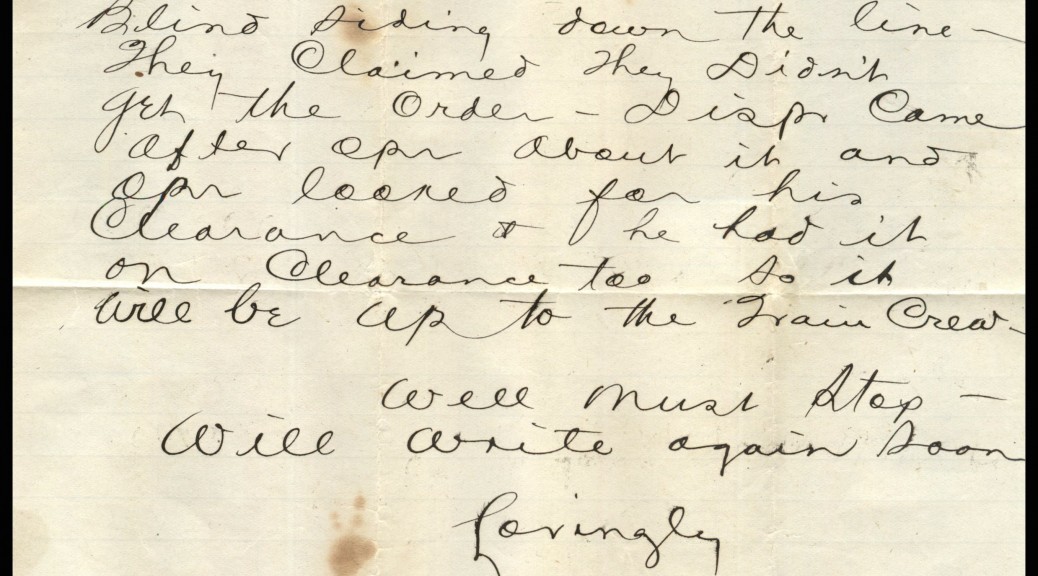 Blind siding down the line -
They Claimed They Didn't
get the Order - Dispr Came
after opr about it and
Opr looked for his
Clearance & he had it
on Clearance too so it
will be up to the Train Crew -
Well must stop -
Will write again soon
Lovingly